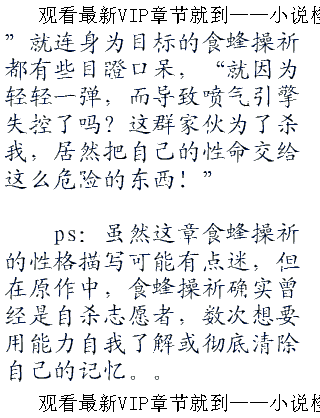 观看最新VIP章节就到——小说检
”就连身为目标的食蜂操祈
都有些目瞪口呆，“就因为
轻轻一弹，而导致喷气引擎
失控了吗？这群家伙为了杀
我，居然把自己的性命交给
这么危险的东西！”
ps：虽然这章食蜂操祈
的性格描写可能有点迷，但
在原作中，食蜂操祈确实曾
经是自杀志愿者，数次想要
用能力自我了解或彻底清除
自己的记忆。。
观看最新VIP章节就到——小说检